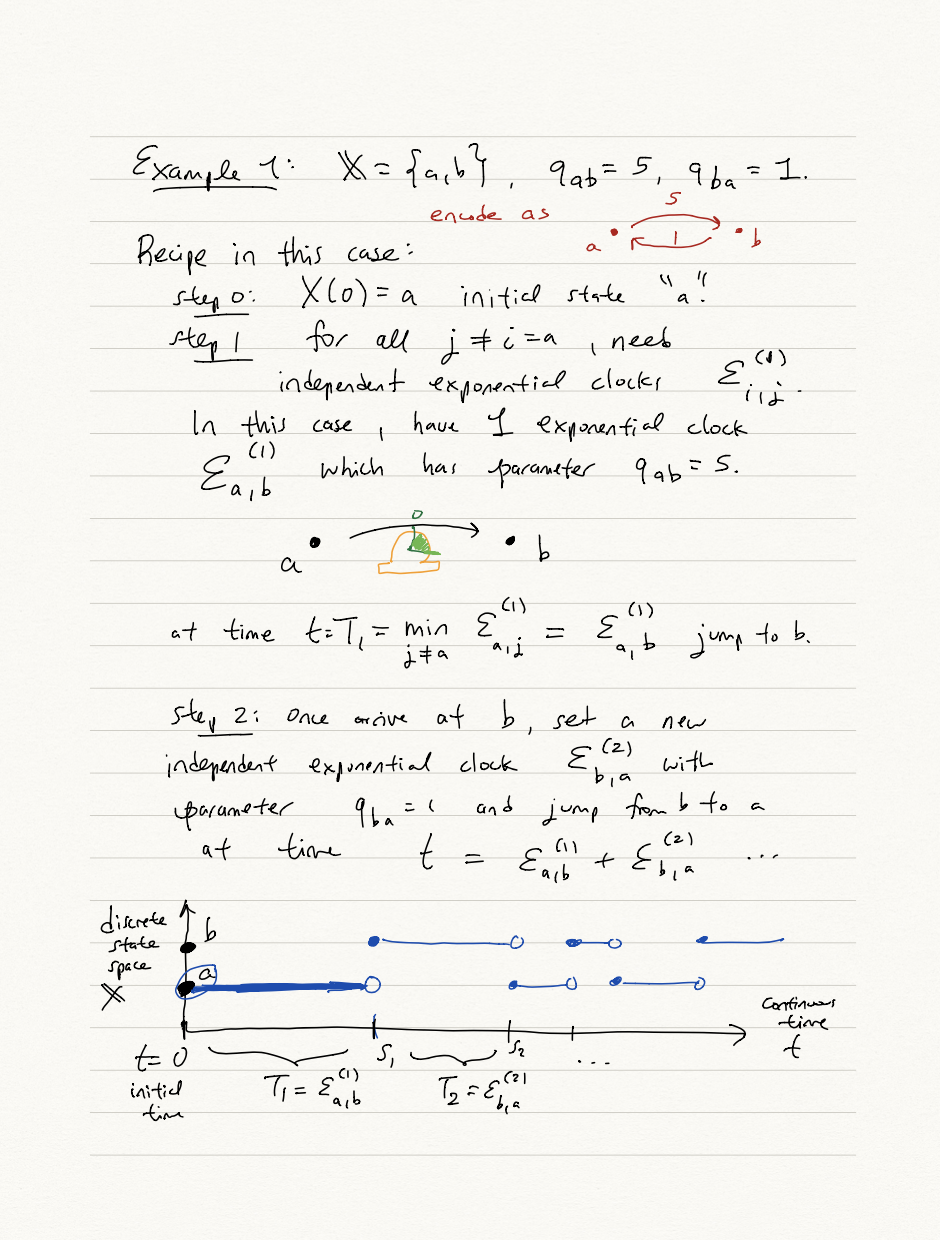 Example 1: 𝕏 = {a,b}, q_ab = 5, q_ba = 1.
encode as
5
a 1 b
Recipe in this case:
step 0: X(0) = a initial state "a".
step 1 for all j ≠ i = a, need
independent exponential clocks ℰ_{i,j}^{(1)}.
In this case, have 1 exponential clock
ℰ_{a,b}^{(1)} which has parameter q_ab = 5.
0
a b
at time t = T_1 = min_{j≠a} ℰ_{a,j}^{(1)} = ℰ_{a,b}^{(1)} jump to b.
step 2: Once arrive at b, set a new
independent exponential clock ℰ_{b,a}^{(2)} with
parameter q_ba = 1 and jump from b to a
at time t = ℰ_{a,b}^{(1)} + ℰ_{b,a}^{(2)} ...
discrete state space 𝕏
b
a
Continuous time t
t = 0 S_1 S_2 ...
initial time
T_1 = ℰ_{a,b}^{(1)} T_2 = ℰ_{b,a}^{(2)}